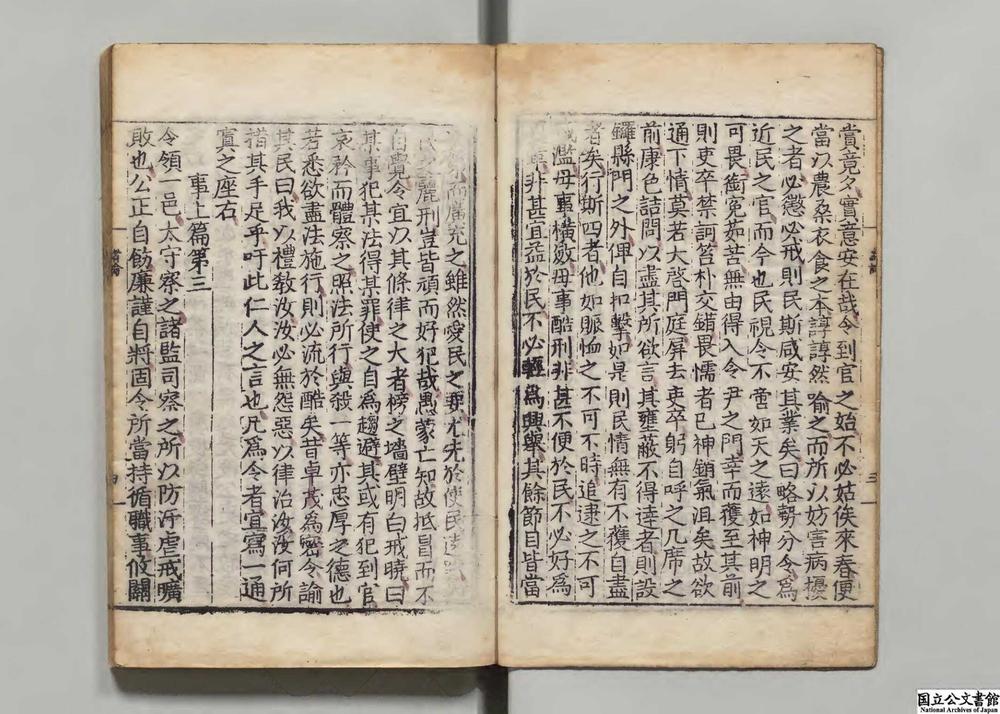 賞竟夕實意安在哉今到官之始不必姑俟來春便
當以農桑衣食之本諄諄然喻之而所以妨害病擾
之者必懲必戒則民斯咸安其業矣曰略勢分令為
近民之官而今也民視令不啻如天之遠如神明之
可畏銜冤茹苦無由得入令尹之門幸而獲至其前
則吏卒禁訶笞朴交錯畏懦者已神銷氣沮矣故欲
通下情莫若大啓門庭屏去吏卒躬自呼之几席之
前康色詰問以盡其所欲言其壅蔽不得達者則設
鑼縣門之外俾自扣擊如是則民情無有不獲自盡
者矣行斯四者他如賑恤之不可不時追逮之不可
濫毋事橫斂毋事酷刑非甚不便於民不必好為
非甚宜益於民不必輕為興舉其餘節目皆當
而廣充之雖然愛民之要尤先於使民遠
麗刑豈皆頑而好犯哉愚蒙亡知故抵冒而不
自覺令宜以其條律之大者榜之墻壁明白戒曉曰
某事犯某法得某罪使之自為趨避其或有犯到官
哀矜而體察之照法所行與殺一等亦忠厚之德也
若悉欲盡法施行則必流於酷矣昔卓茂為密令諭
其民曰我以禮教汝汝必無怨惡以律治汝汝何所
措其手足乎吁此仁人之言也凡為令者宜寫一通
寘之座右
事上篇第三
令領一邑太守察之諸監司察之所以防汙虐戒曠
敗也公正自飭廉謹自將固令所當持循職事攸關
三
四
国立公文書館
National Archives of Japan